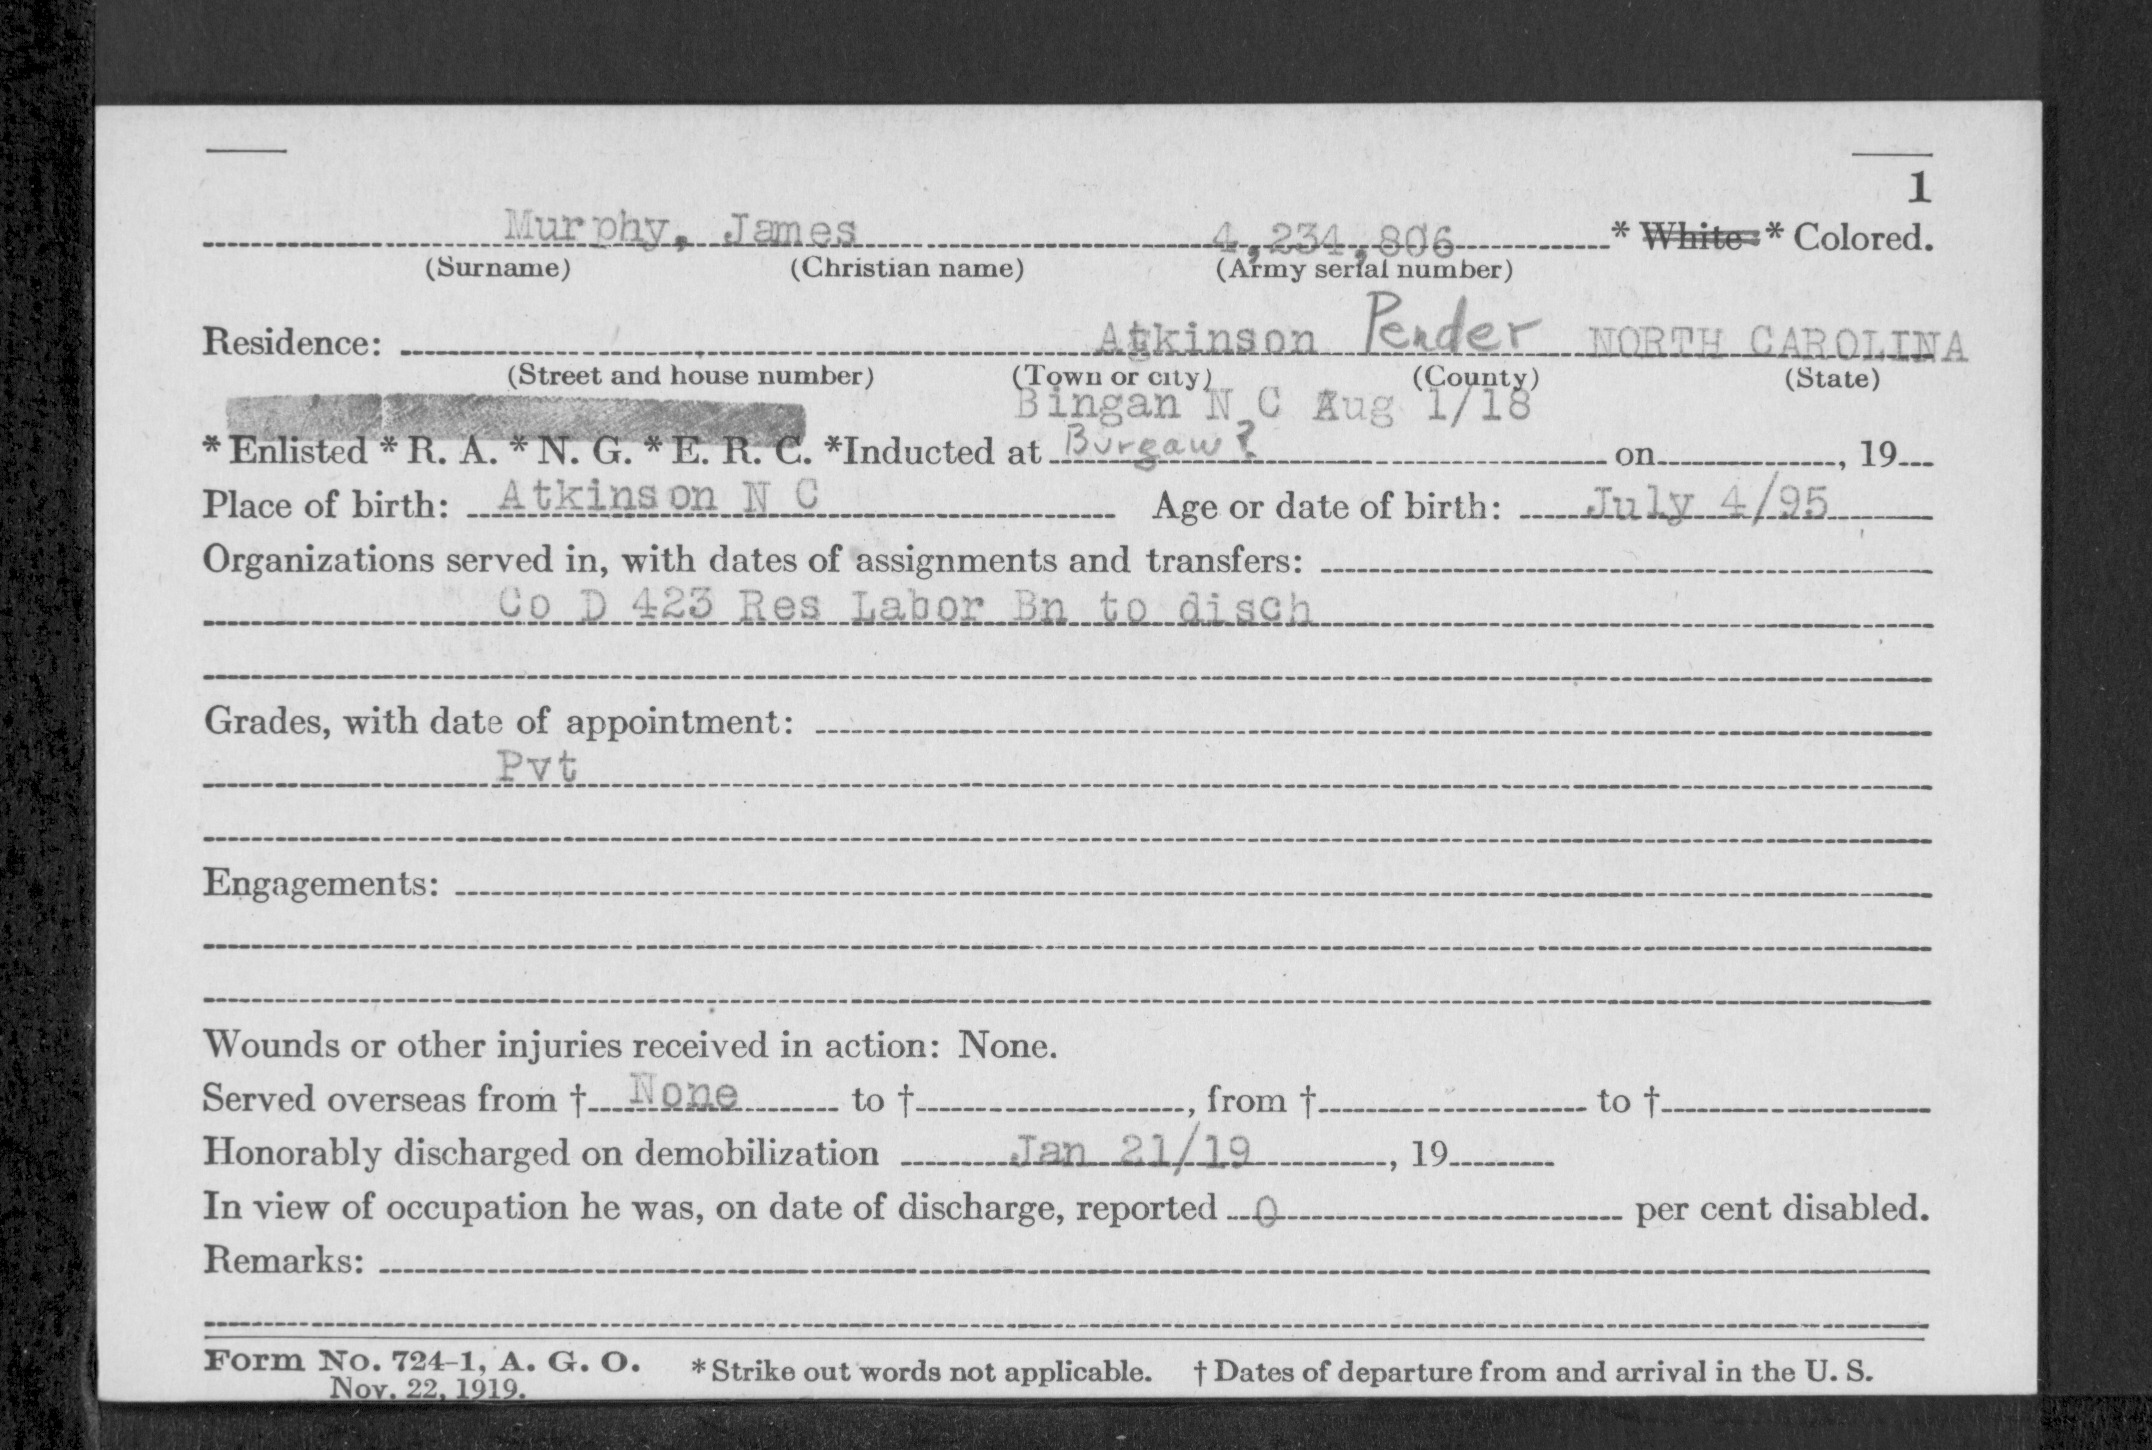 1
Murphy, James 4,234,806 * White * Colored.
(Surname) (Christian name) (Army serial number)
Residence: Atkinson Pender NORTH CAROLINA
(Street and house number) (Town or city) (County) (State)
Bingan N C Aug 1/18
* Enlisted * R. A. * N. G. * E. R. C. *Inducted at Burgaw? on , 19
Place of birth: Atkinson N C Age or date of birth: July 4/95
Organizations served in, with dates of assignments and transfers:
Co D 423 Res Labor Bn to disch
Grades, with date of appointment:
Pvt
Engagements:
Wounds or other injuries received in action: None.
Served overseas from † None to † , from † to †
Honorably discharged on demobilization Jan 21/19 , 19
In view of occupation he was, on date of discharge, reported 0 per cent disabled.
Remarks:
Form No. 724-1, A. G. O. * Strike out words not applicable. † Dates of departure from and arrival in the U. S.
Nov. 22, 1919.